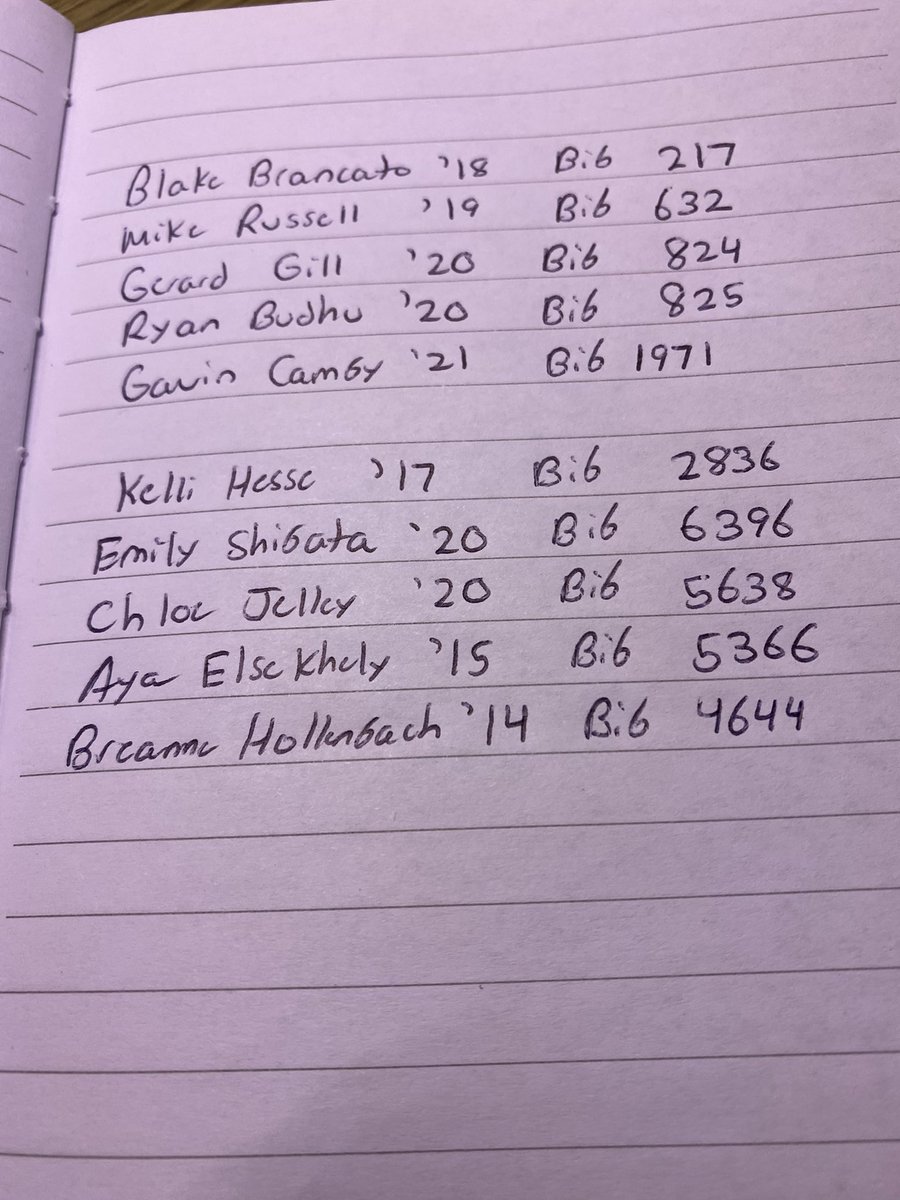 Blake Brancato '18 Bib 217
Mike Russell '19 Bib 632
Gerard Gill '20 Bib 824
Ryan Budhu '20 Bib 825
Gavin Camby '21 Bib 1971
Kelli Hesse '17 Bib 2836
Emily Shibata '20 Bib 6396
Chloe Jelley '20 Bib 5638
Aya Elsekhely '15 Bib 5366
Breanne Hollenbach '14 Bib 4644